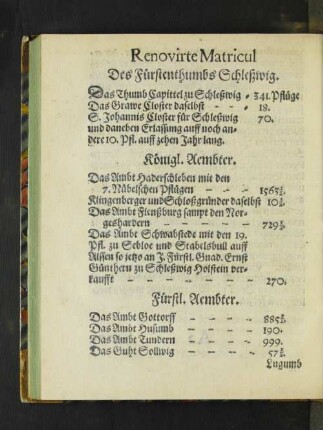 Renovirte Matricul
Des Fürstenthumbs Schleßwig.
Das Thumb Capittel zu Schleßwig - 341. Pflüge
Das Grawe Closter daselbst - - - 18.
S. Johannis Closter für Schleßwig 70.
und daneben Erlassung auff noch an-
dere 10. Pfl. auff zehen Jahr lang.
Königl. Aembter.
Das Ambt Haderschleben mit den
7. Nübelschen Pflügen - - - -
Klingenberger und Schloßgründer daselbst
Das Ambt Flenßburg sampt den Nor-
geshardern - - - -
Das Ambt Schwabstede mit den 19.
Pfl. zu Sebloe und Stabelsbull auff
Alssen so jetzo an J. Fürstl. Gnad. Ernst
Günthern zu Schleßwig Holstein ver-
kaufft - - - - - 270.
Fürstl. Aembter.
Das Ambt Gottorff - - - -
Das Ambt Husumb - - - - 190.
Das Ambt Tundern - - - - 999.
Das Guht Sollwig - - - -
Lugumb